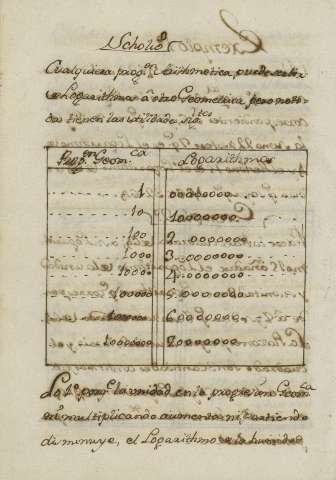 Scholio
Cualquiera prog.on Arithmetica, puede
Logarithma â otra Geometrica, pero no to
das tienen las utilidades sig.tes
Prog.on Geom.ca Logarithmos
1 0.0000000
10 1.0000000
100 2.0000000
1000 3.0000000
10000 4.0000000
100000 5.0000000
1000000 6.0000000
10000000 7.0000000
Lo 1.o porq.e la unidad en la progresion Geom.ca
ni multiplicando aumenta, ni partiendo
diminuye, el Logarithmo de la unidad